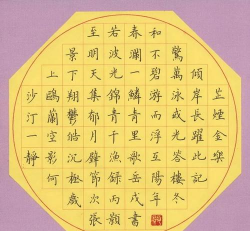 至若春和
景明波瀾不驚
上下天光一碧萬傾
沙鷗翔集錦鱗游泳岸芷
汀蘭鬱郁青青而或長煙
一空皓月千里浮光躍金
靜影沉漁歌互答此樂
何極節錄岳陽樓記
歲次丙戌年冬
張穎書